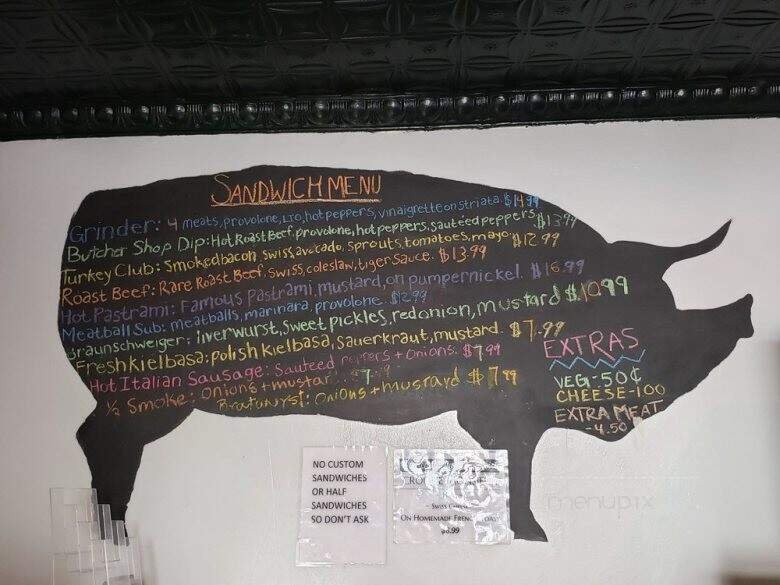 SANDWICH MENU
Grinder: 4 meats, provolone, LTO, hot peppers, vinaigrette on striata. $14.99
Butcher Shop Dip: Hot Roast Beef, provolone, hot peppers, sautéed peppers $13.99
Turkey Club: Smoked bacon, swiss, avocado, sprouts, tomatoes, mayo $12.99
Roast Beef: Rare Roast Beef, swiss, coleslaw, tiger sauce. $13.99
Hot Pastrami: Famous Pastrami, mustard, on pumpernickel. $16.99
Meatball Sub: meatballs, marinara, provolone. $12.99
Braunschweiger: liverwurst, sweet pickles, red onion, mustard $10.99
Fresh kielbasa: polish kielbasa, sauerkraut, mustard. $7.99
Hot Italian Sausage: Sauteed peppers + Onions. $7.99
½ Smoke: Onions + mustar
Bratwurst: Onions + mustard $7.99
EXTRAS
VEG-50¢
CHEESE-1.00
EXTRA MEAT
-4.50
NO CUSTOM
SANDWICHES
OR HALF
SANDWICHES
SO DON'T ASK
SWISS CHEESE
ON HOMEMADE
menupix